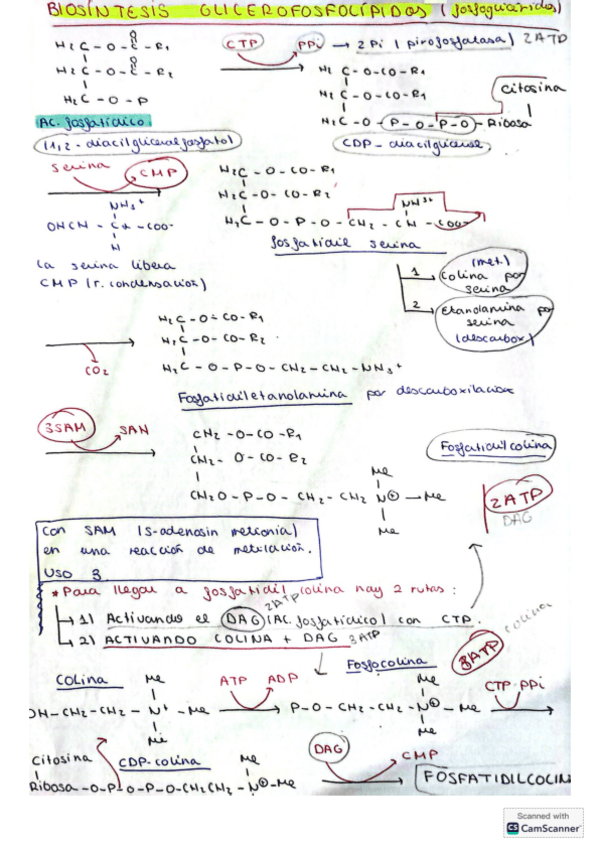 BIOSÍNTESIS GLICEROFOSFOLÍPIDOS (fosfoglicéridos)
H₂C - O - C - R₁
O
CTP PPi → 2Pi (pirofosfatasa) 2ATP
H₂C - O - C - R₂
O
H₂C - O - P
H₂C - O - CO - R₁
H₂C - O - CO - R₂
H₂C - O - P - O - P - O - Ribosa
Citosina
Ac. fosfatídico
(1,2-diacilglicerolfosfato)
CDP-diacilglicerol
Serina CMP
NH₃⁺
OHCH - Cα - COO-
H
H₂C - O - CO - R₁
H₂C - O - CO - R₂
H₂C - O - P - O - CH₂ - CH - COO-
NH³⁺
fosfatidil serina
La serina libera
CMP (r. condensación)
1 (met.)
Colina por
serina
2 Etanolamina por
serina
(descarbox)
CO₂
H₂C - O - CO - R₁
H₂C - O - CO - R₂
H₂C - O - P - O - CH₂ - CH₂ - NH₃⁺
Fosfatidiletanolamina por descarboxilación
3SAM SAN
CH₂ - O - CO - R₁
CH₂ - O - CO - R₂
CH₂O - P - O - CH₂ - CH₂ N⊕ - Me
Me
Me
Fosfatidilcolina
2ATP
DAG
Con SAM (S-adenosin metionia)
en una reacción de metilación.
USO 3
* Para llegar a fosfatidil colina hay 2 rutas:
1) Activando el DAG (Ac. fosfatídico) con CTP.
2ATP
2) ACTIVANDO COLINA + DAG 3ATP
3ATP colina
Colina
Me
OH-CH₂-CH₂ - N⁺ - Me
Me
ATP ADP
Fosfocolina
Me
P-O-CH₂-CH₂-N⊕-Me
Me
CTP PPi
Citosina
CDP-colina
Ribosa-O-P-O-P-O-CH₂CH₂-N⊕-Me
Me
Me
DAG CMP
FOSFATIDILCOLIN
Scanned with
CS CamScanner